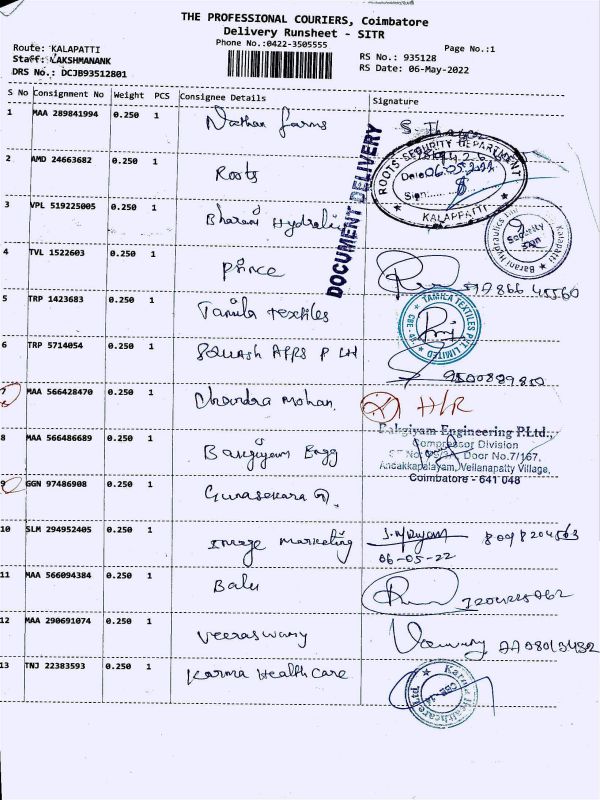 THE PROFESSIONAL COURIERS, Coimbatore
Delivery Runsheet - SITR
Phone No.:0422-3505555
Page No.:1
Route: KALAPATTI
Staff: LAKSHMANANK
DRS No.: DCJB93512801
RS No.: 935128
RS Date: 06-May-2022
S No Consignment No Weight PCS Consignee Details Signature
1 MAA 289841994 0.250 1 Nathan farms
2 AMD 24663682 0.250 1 Roots
ROOTS SECURITY DEPARTMENT
Date 06.05.2022
Sign
KALAPPATTI
DOCUMENT DELIVERY
3 VPL 519225005 0.250 1 Bharani Hydralic
Barani Hydraulics
Kalapatti
Security
Sign
4 TVL 1522603 0.250 1 prince
5 TRP 1423683 0.250 1 Tamila textiles
TAMILA TEXTILES PVT. LIMITED
6 TRP 5714054 0.250 1
7 MAA 566428470 0.250 1 Chandra mohan. H/R
8 MAA 566486689 0.250 1 Bakgiyam Engg
Bakgiyam Engineering P.Ltd.,
Compressor Division
Door No.7/167,
Andakkapalayam, Vellanapatty Village,
Coimbatore - 641 048
9 GGN 97486908 0.250 1 Gunasekara
10 SLM 294952405 0.250 1 Image marketing
06-05-22
11 MAA 566094384 0.250 1 Balu
12 MAA 290691074 0.250 1 Veeraswamy
13 TNJ 22383593 0.250 1 Karma Health Care
Karma Healthcare